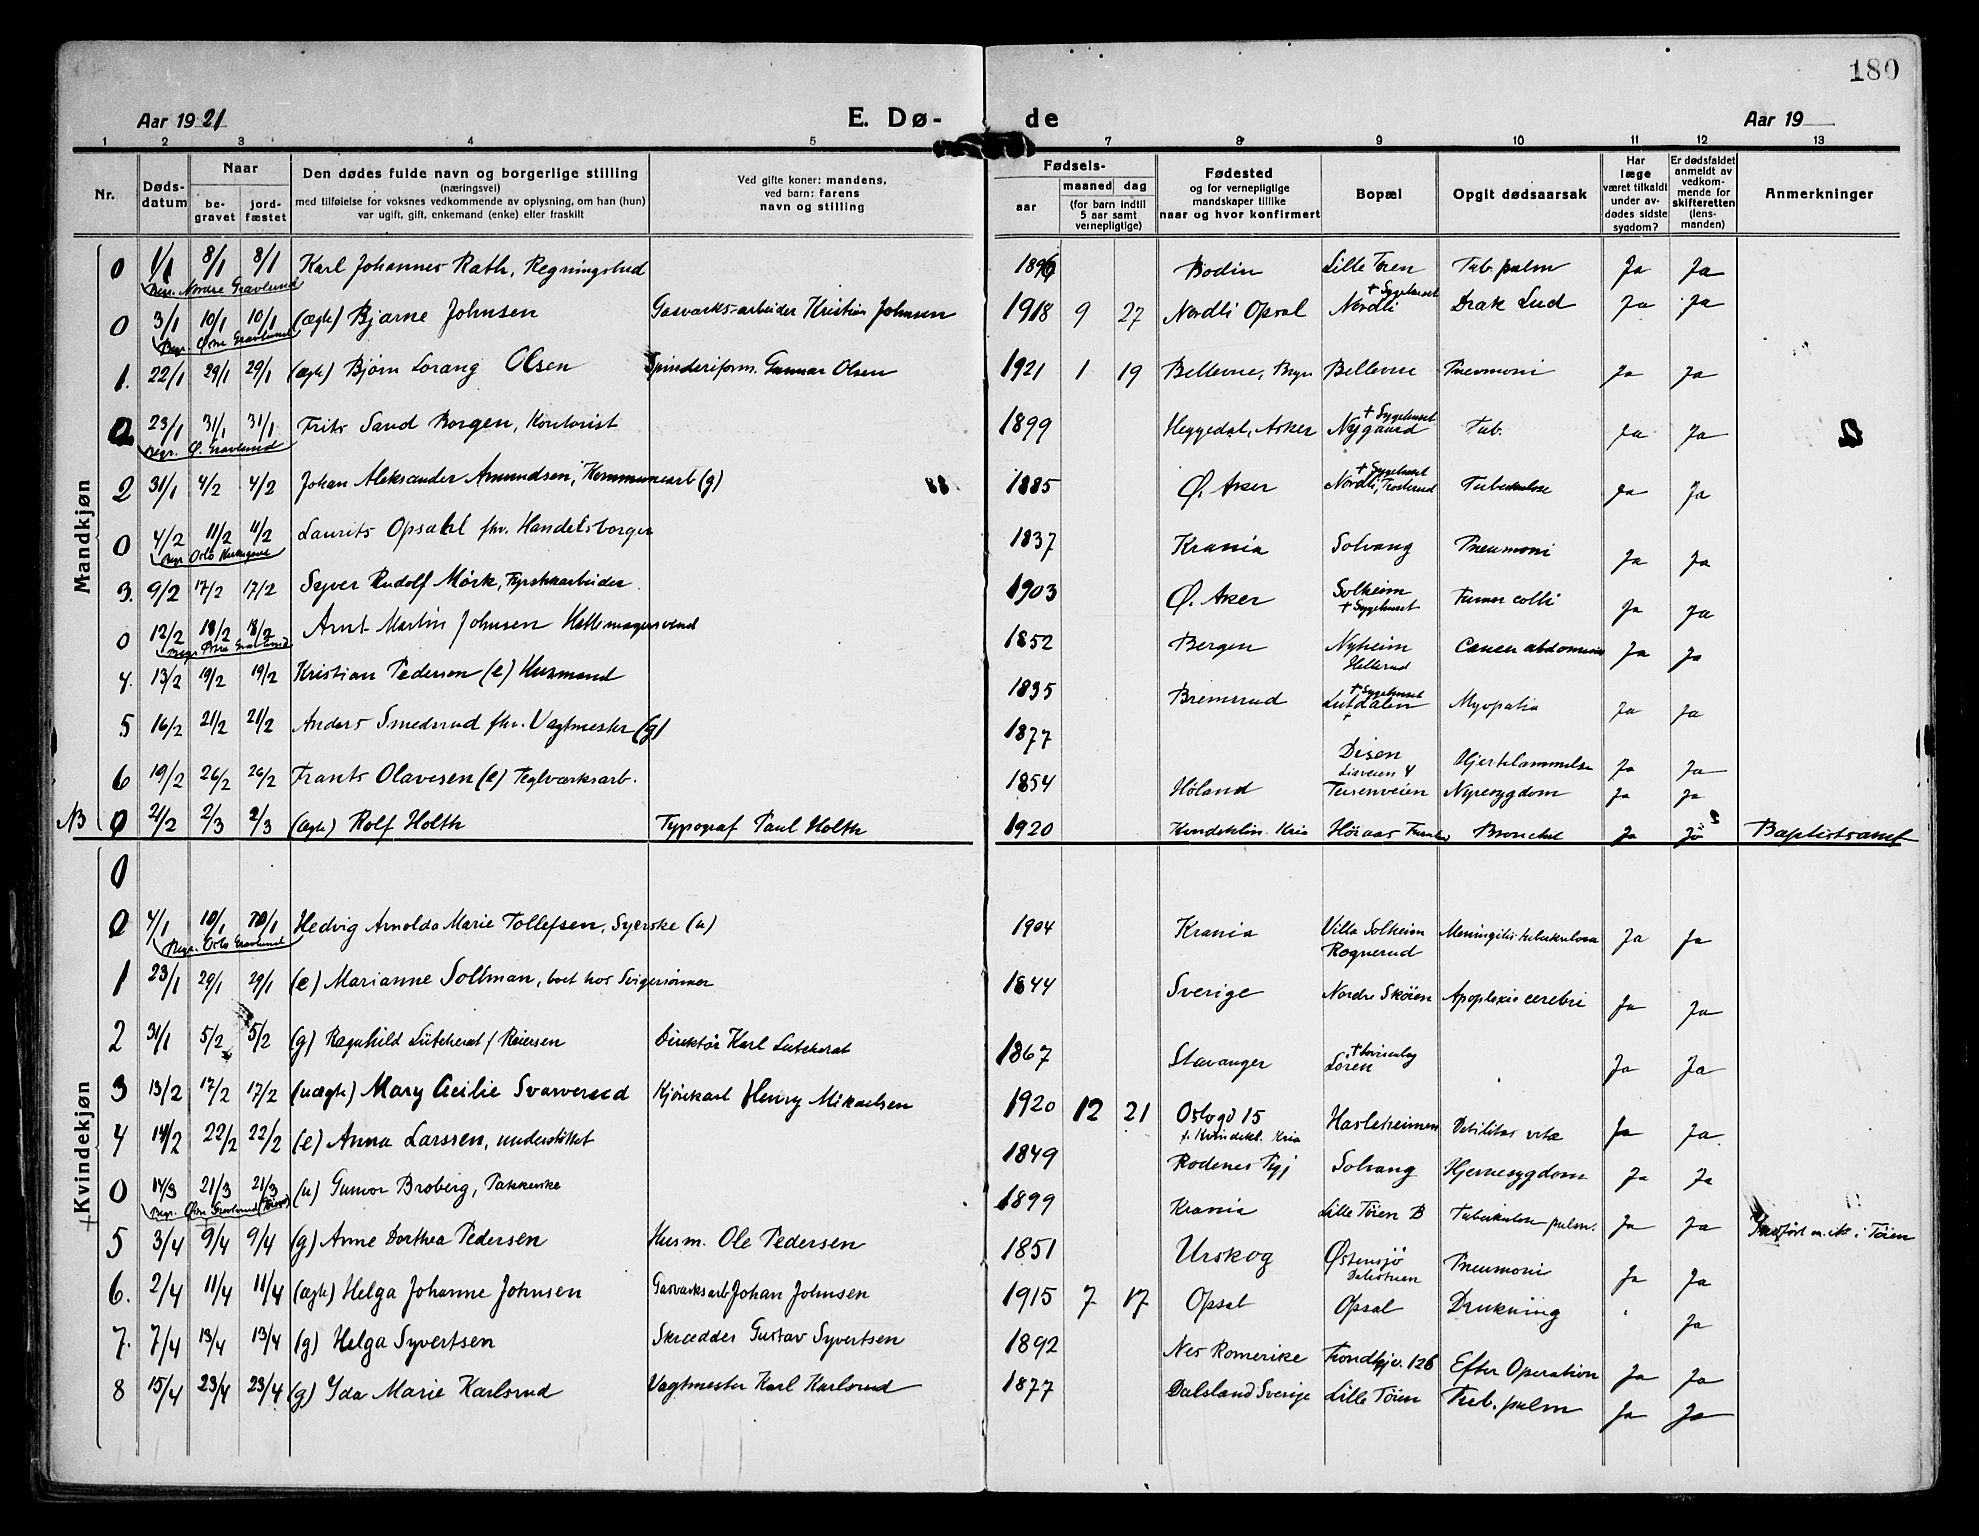 180
Aar 1921 E. Dø- de Aar 19
1 2 3 4 5 7 8 9 10 11 12 13
Nr. Døds-datum Naar be-gravet jord-fæstet
Den dødes fulde navn og borgerlige stilling
(næringsvei)
med tilføielse for voksnes vedkommende av oplysning, om han (hun)
var ugift, gift, enkemand (enke) eller fraskilt
Ved gifte koner: mandens,
ved barn: farens
navn og stilling
Fødsels-
aar maaned dag
(for barn indtil 5 aar samt vernepligtige)
Fødested
og for vernepligtige
mandskaper tillike
naar og hvor konfirmert
Bopæl
Opgit dødsaarsak
Har læge været tilkaldt under av-dødes sidste sygdom?
Er dødsfaldet anmeldt av vedkom-mende for skifteretten (lens-manden)
Anmerkninger
Mandkjøn
0 1/1 8/1 8/1 Karl Johannes Rath, Regningsbud 1896 Bodin Lille Tøien Tub. pulm Ja Ja
Begr. Nordre Gravlund
0 3/1 10/1 10/1 (ægte) Bjarne Johnsen Gasverks-arbeider Kristian Johnsen 1918 9 27 Nordli Opsal Nordli + Sygehuset Ja Ja
Begr. Østre Gravlund
1. 22/1 29/1 29/1 (ægte) Bjørn Lorang Olsen Spinderiform. Gunnar Olsen 1921 1 19 Bellevue, Bryn Bellevue Pneumoni Ja Ja
0 23/1 31/1 31/1 Frits Sand Borgen, Kontorist 1899 Heggedal, Asker Nygaard + Sygehuset Tub. Ja Ja 2
Begr. Ø. Gravlund
2 31/1 4/2 4/2 Johan Aleksander Amundsen, Kommunearb (g) 88 1885 Ø. Aker Nordli, Trosterud + Sygehuset Tuberkulose Ja Ja
0 4/2 11/2 11/2 Laurits Opsahl fhv. Handelsborger 1837 Krania Solvang Pneumoni Ja Ja
Begr Oslo
3. 9/2 17/2 17/2 Syver Rudolf Mørk, Fyrstikkarbeider 1903 Ø. Aker Solheim + Sygehuset Tumor colli Ja Ja
0 12/2 18/2 18/2 Arnt Martin Johnsen Hattemagersvend 1852 Bergen Nyheim Hellerud Cancer abdominis Ja Ja
Begr Østre Gravlund
4. 13/2 19/2 19/2 Kristian Pedersen (e) Husmand 1835 Bremsrud Lutdalen + Sygehuset Myopatia Ja Ja
5 16/2 21/2 21/2 Anders Smedsrud fhv. Vagtmester (g) 1877 Disen Lisveien 4 Hjertelammelse Ja Ja
6 19/2 26/2 26/2 Frants Olavesen (e) Teglværksarb. 1854 Høland Teisenveien Nyresygdom Ja Ja
NB 0 21/2 2/3 2/3 (ægte) Rolf Holth Typograf Paul Holth 1920 Kvindeklin. Kria Ja Ja Baptistsamf
Kvindekjøn
0
0 4/1 10/1 10/1 Hedvig Arnolda Marie Tollefsen, Syerske (u) 1904 Krania Villa Solheim Rognerud Meningitis tuberkulosa Ja Ja
Begr. Oslo Gravlund
1 23/1 29/1 29/1 (e) Marianne Soltman, boet hos Svigersønner 1844 Sverige Nordre Skøien Apoplexie cerebri Ja Ja
2 31/1 5/2 5/2 (g) Ragnhild Lütcherat f Reiersen Direktør Karl Lutcherat 1867 Stavanger Løren + Lovisenberg Ja Ja
3 13/2 17/2 17/2 (uægte) Mary Cecilie Svarverud Kjørekarl Henry Mikaelsen 1920 12 21 Oslogd 15 f. Kvindekl. Kria Hasleheimen Debilitas vitæ Ja Ja
4 14/2 22/2 22/2 (e) Anna Larssen, understøttet 1849 Rødenes Pgj Solvang Hjernesygdom Ja Ja
0 14/3 21/3 21/3 (u) Gunvor Broberg, Pakkerske 1899 Krania Lille Tøien B Tuberkulose pulm. Ja Ja Indført m.k. i Tøien
Begr. Østre Gravlund (Tøien)
5 3/4 9/4 9/4 (g) Anne Dorthea Pedersen Husm. Ole Pedersen 1851 Urskog Østensjø Dalestuen Pneumoni Ja Ja
6. 2/4 11/4 11/4 (ægte) Helga Johanne Johnsen Gasverksarb Johan Johnsen 1915 7 17 Opsal Opsal Drukning " Ja
7. 7/4 13/4 13/4 (g) Helga Syvertsen Skrædder Gustav Syvertsen 1892 Nes Romerike Trondhjv. 126 Efter Operation Ja Ja
8 15/4 23/4 23/4 (g) Ida Marie Karlsrud Vagtmester Karl Karlsrud 1877 Dalsland Sverige Lille Tøien Tub. pulm Ja Ja